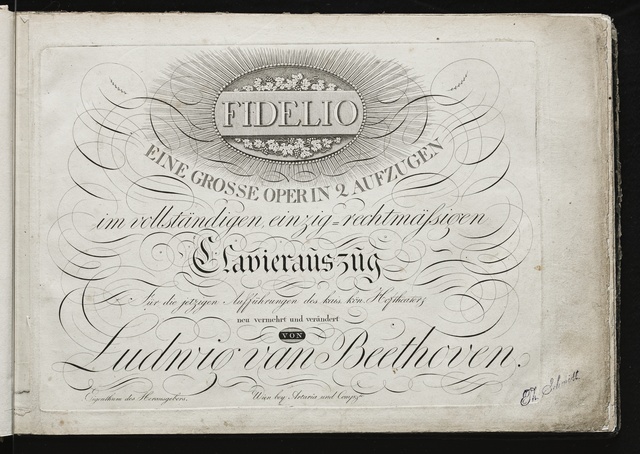 FIDELIO
EINE GROSSE OPER IN 2 AUFZUGEN
im vollständigen, einzig=rechtmäſsigen
Clavierauszug
Für die jetzigen Aufführungen des kais. kön. Hoftheaters
neu vermehrt und verändert
VON
Ludwig van Beethoven.
Eigenthum des Herausgebers. Wien bey Artaria und Comp.
Th. Schmidt